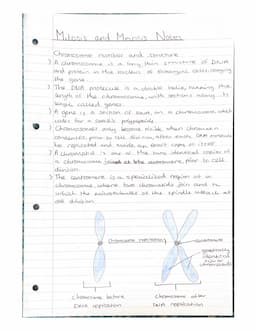 Mitosis and Meiosis Notes
Chromosome number and structure
) A chromosome is a long thin structure of DNA
and protein in the nucleus of eukaryotic cells carrying
the gene
) The DNA molecule is a double helix, running the
length of the chromosome, with sections along its
length called genes.
) A gene is a section of DNA, on a chromosome which
codes for a specific polypeptide
) Chromosomes only become visible when chromatin
condenses prior to cell division, after each DNA
be replicated and made an exact copy of itself
) A chromatid is one of the two identical copies of
a chromosome joined at the centromere, prior to cell
division
) The centromere is a specialised region of a
chromosome, where two chromatids join and to
which the microtubules of the spindle attach at
cell division
Chromosome replication
centromere
genetically
identical
sister
chromatids
Chromosome before
DNA replication
Chromosome after
DNA replication